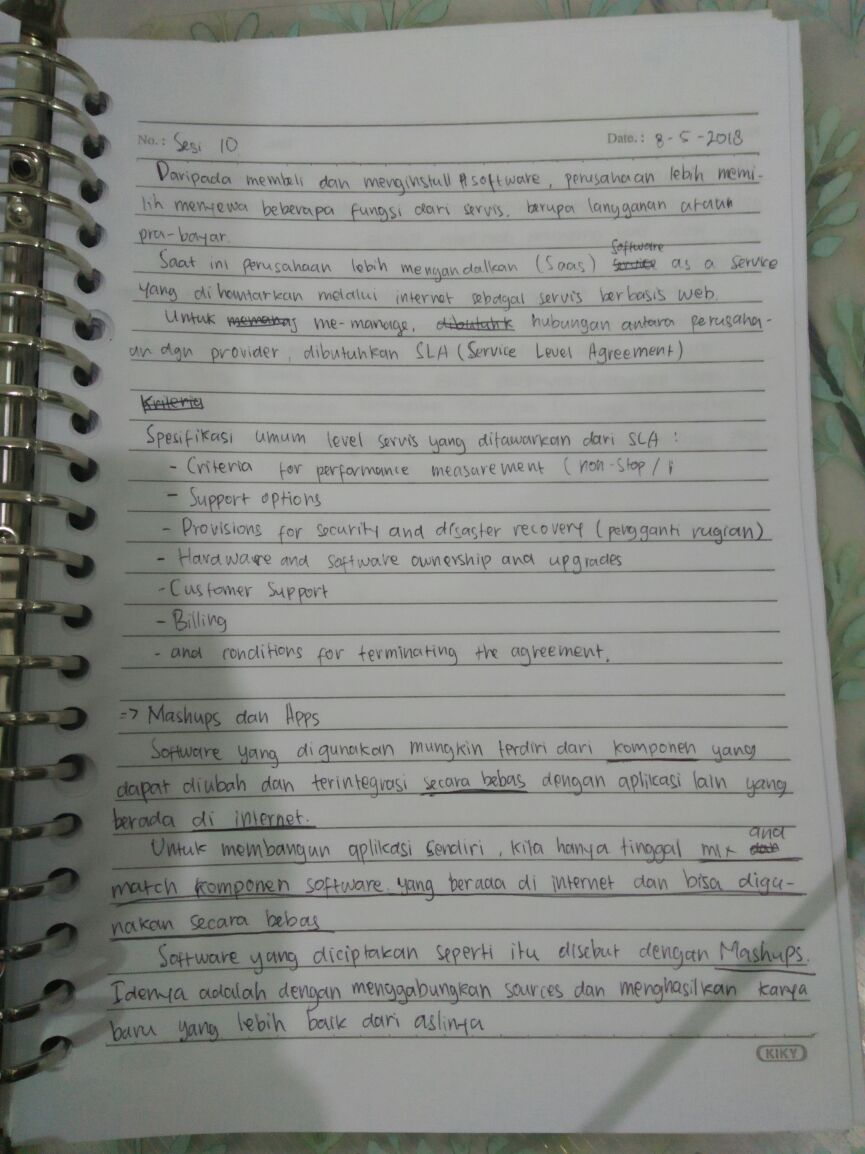 No.: Sesi 10 Date.: 8-5-2018
Daripada membeli dan menginstall software, perusahaan lebih memi-
lih menyewa beberapa fungsi dari servis. berupa langganan ataun
pra-bayar.
Saat ini perusahaan lebih mengandalkan (Saas) Software as a service
yang dihantarkan melalui internet sebagai servis berbasis web.
Untuk me-manage, hubungan antara perusaha-
an dgn provider, dibutuhkan SLA (Service Level Agreement)
Kriteria
Spesifikasi umum level servis yang ditawarkan dari SLA :
- Criteria for performance measurement (non-stop/
- Support options
- Provisions for security and disaster recovery (pengganti rugian)
- Hardware and software ownership and upgrades
- Customer Support
- Billing
- and conditions for terminating the agreement.
=> Mashups dan Apps
Software yang digunakan mungkin terdiri dari komponen yang
dapat diubah dan terintegrasi secara bebas dengan aplikasi lain yang
berada di internet.
Untuk membangun aplikasi sendiri, kita hanya tinggal mix and
match komponen software yang berada di internet dan bisa digu-
nakan secara bebas
Software yang diciptakan seperti itu disebut dengan Mashups.
Idenya adalah dengan menggabungkan sources dan menghasilkan karya
baru yang lebih baik dari aslinya
KIKY